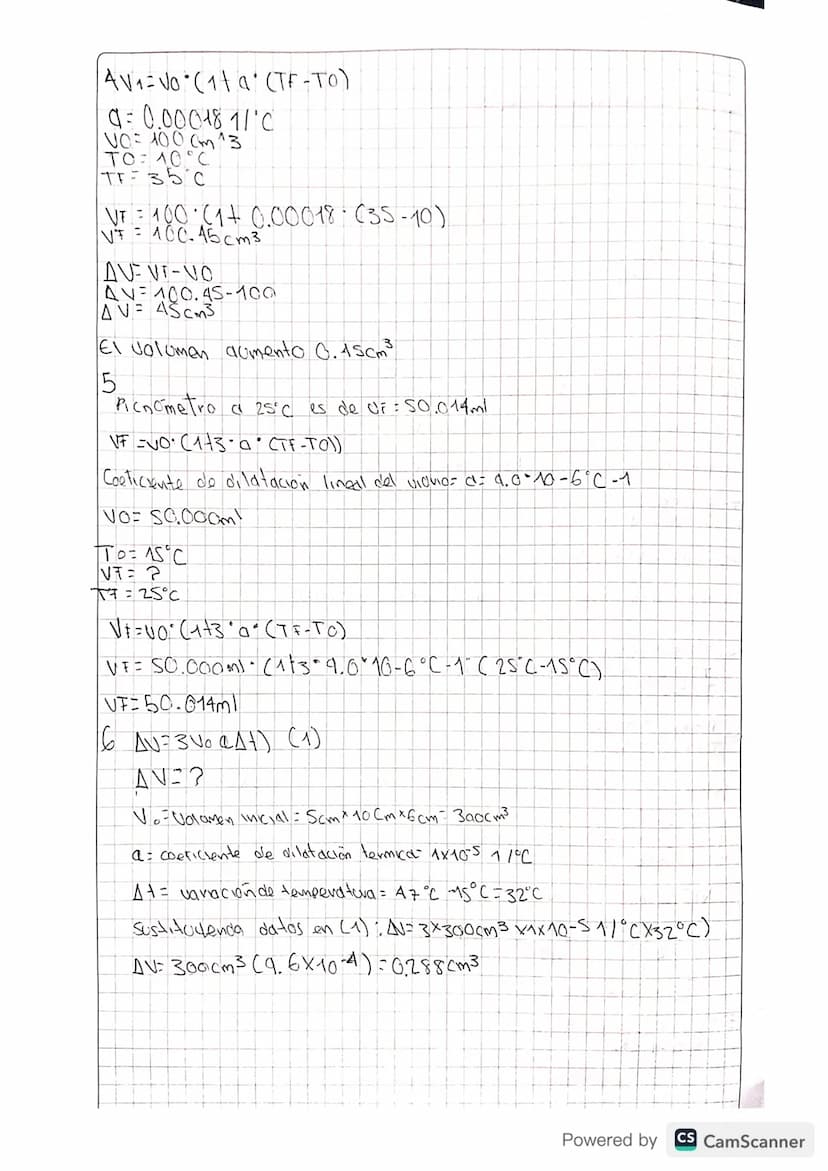 4 V1=V0·(1+a·(TF-T0)
a=0.00018 1/°C
V0=100cm^3
T0=10°C
TF=35°C
VF=100·(1+0.00018·(35-10)
VF=100.45cm³
ΔV=VF-V0
ΔV=100.45-100
ΔV=45cm³
El volumen aumento 0.45cm³
5
Picnómetro a 25°C es de VF=50.014ml
VF=V0·(1+3·a·(TF-T0))
Coeficiente de dilatación lineal del vidrio=a=9.0*10-6°C-1
V0=50.000ml
T0=15°C
VF=?
TF=25°C
Vf=V0·(1+3·a·(TF-T0)
VF=50.000ml·(1+3*9.0*10-6°C-1·(25°C-15°C)
VF=50.014ml
6 ΔV=3V0 aΔt) (1)
ΔV=?
V0=Volumen inicial=5cm×10cm×6cm=300cm³
a=coeficiente de dilatación termica=1x10-5 1/°C
Δt=variación de temperatura=47°C-15°C=32°C
Sustituyendo datos en (1):ΔV=3x300cm³x1x10-5 1/°Cx32°C)
ΔV=300cm³(9.6x10-4)=0.288cm³
Powered by CS CamScanner